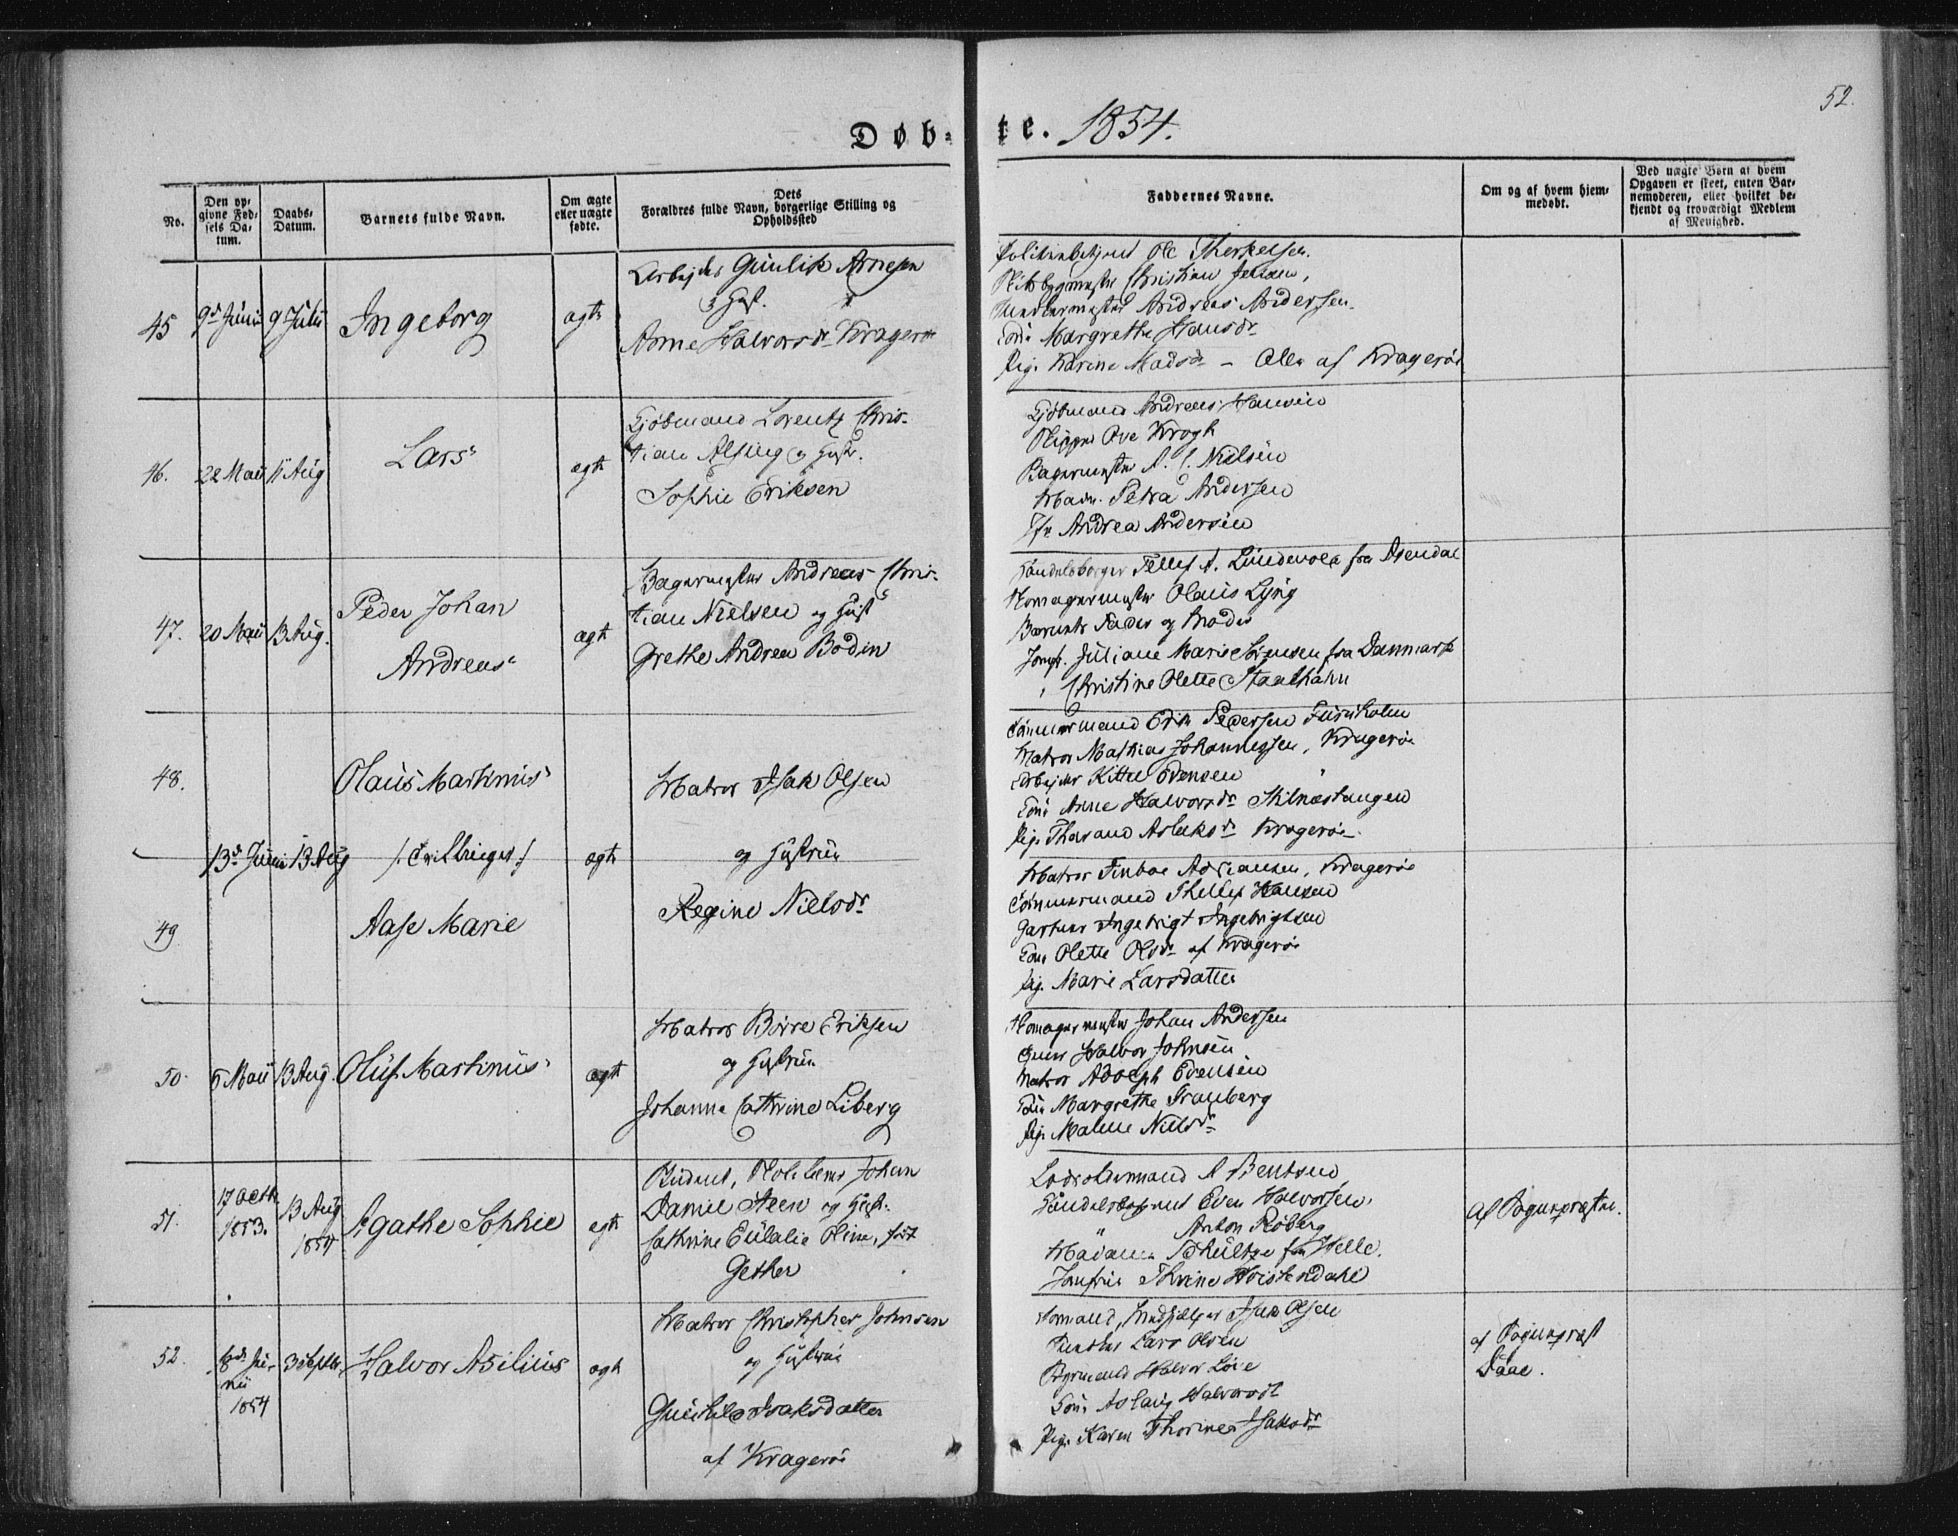 Døb-te. 1854.
52.
No.
Den op-
givne Fød-
sels Da-
tum.
Daabs-
Datum.
Barnets fulde Navn.
Om ægte
eller uægte
fødte.
Dets
Forældres fulde Navn, borgerlige Stilling og
Opholdssted
Faddernes Navne.
Om og af hvem hjem-
medøbt.
Ved uægte Børn at hvem
Opgaven er skeet, enten Bar-
nemoderen, eller hvilket be-
kjendt og troværdigt Medlem
af Menighed.
45
9d Junii
9 Julii
Ingeborg
ægte
Arbejder Gunlik Arnesen
og Hust.
Anne Halvorsdr Kragerøe
Politiebetjent Ole Therkelsen.
Skibsbygmester Christian Jensen,
Andreas Andersen.
Kone Margrethe Hansdr
Pige Karine Madsdr - Alle af Kragerøe
46.
22 Maii
11 Aug
Lars
ægte
Kjøbmand Lorentz Chris-
tian Alsing og Hustr.
Sophie Eriksen
Kjøbmand Andreas Hansen
Skipper Ove Krogh
Bagermester A. C. Nielsen
Madm. Petra Andersen
Jfr Andrea Andersen
47.
20 Maii
13 Aug.
Peder Johan
Andreas
ægte
Bagermester Andreas Chris-
tian Nielsen og Hust
Grethe Andrea Bodin
Handelsborger Tellef A. Lindevold fra Arendal
Skomagermester Olaus Lyng
Barnets Fader og Moder
Jomfr. Juliane Marie Sørensen fra Danmark
" Christine Olette Staalhahn
48.
Olaus Martinus
Matros Isak Olsen
Tømmermand Erik Pedersen Furuholm
Matros Mathias Johannessen, Kragerøe
Arbejder Kittel Evensen "
Kone Anne Halvorsdr Stilnæstangen
Pige Tharand Aslaksdr Kragerøe.
13de Junii
13 Aug
/: Tvillinger :/
ægte
og Hustrue
49
Aase Marie
Regine Nielsdr
Matros Finboe Adriansen, Kragerøe
Tømmermand Thellef Hansen
Gartner Ingebrigt Ingebrigtsen
Kone Olette Olsdr af Kragerøe
Pig. Marie Larsdatter
50.
6 Maii
13 Aug.
Oluf Martinus
ægte
Matros Börre Eriksen
og Hustrue
Johanne Cathrine Liberg
Skomagermester Johan Andersen
Halvor Johnsen
Matros Adolph Evensen
Kone Margrethe Tranberg
Pige Malene Nielsdr
51.
17 Octbr
1853.
13 Aug
1854
Agathe Sophie
ægte
Student, Skolelærer Johan
Daniel Steen og Hustr.
Cathrine Eulalie Oline, født
Gether
Lodsoldermand A Bentsen
Handelsbetjent Even Halvorsen.
" Anton Röberg
Madame Schultze fra Helle.
Jomfrue Thrine Hvistendahl
Af Sognepræsten.
52.
6de Ju-
nii
1854
3 Septbr.
Halvor Asilius
ægte
Matros Christopher Johnsen
og Hustrue
Gunhild Isaksdatter
af Kragerøe
Isak Olsen
Lars Olsen
Styrmand Halvor Löve
Kone Aslaug Halvorsdr
Pige Karen Thorine Isaksdr
af Sognepræst
Daae.